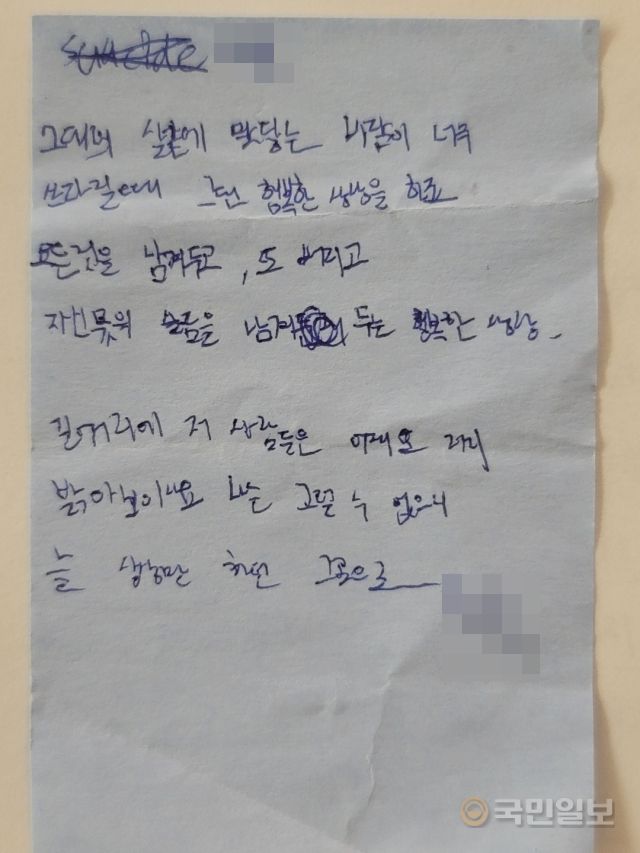 suicide
그대의 살갗에 맞닿는 바람이 너무
쓰라릴때 그런 행복한 상상을 하죠
모든것을 남겨두고, 또 버리고
자신몫의 슬픔을 남겨 두는 행복한 상상.
길거리에 저 사람들은 어째요 저리
밝아보이나요 나는 그럴 수 없으니
늘 상상만 하던 그곳으로
국민일보